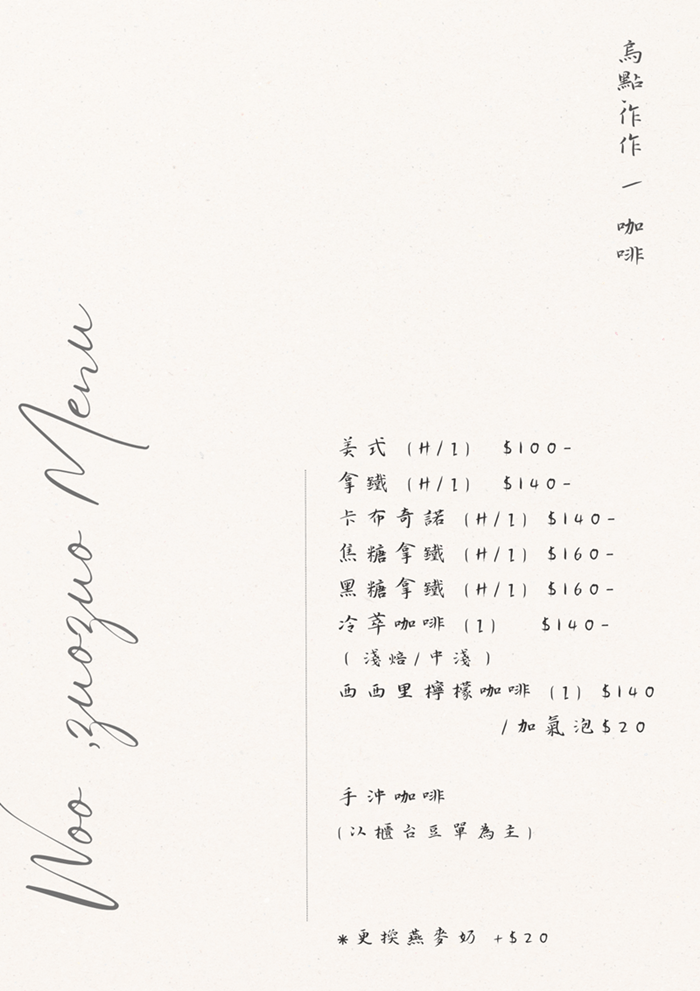 烏點作作 — 咖啡
Woo ,zuozuo Menu
美式 (H/I) $100-
拿鐵 (H/I) $140-
卡布奇諾 (H/I) $140-
焦糖拿鐵 (H/I) $160-
黑糖拿鐵 (H/I) $160-
冷萃咖啡 (I) $140-
(淺焙/中淺)
西西里檸檬咖啡 (I) $140
/加氣泡$20
手沖咖啡
(以櫃台豆單為主)
*更換燕麥奶 +$20